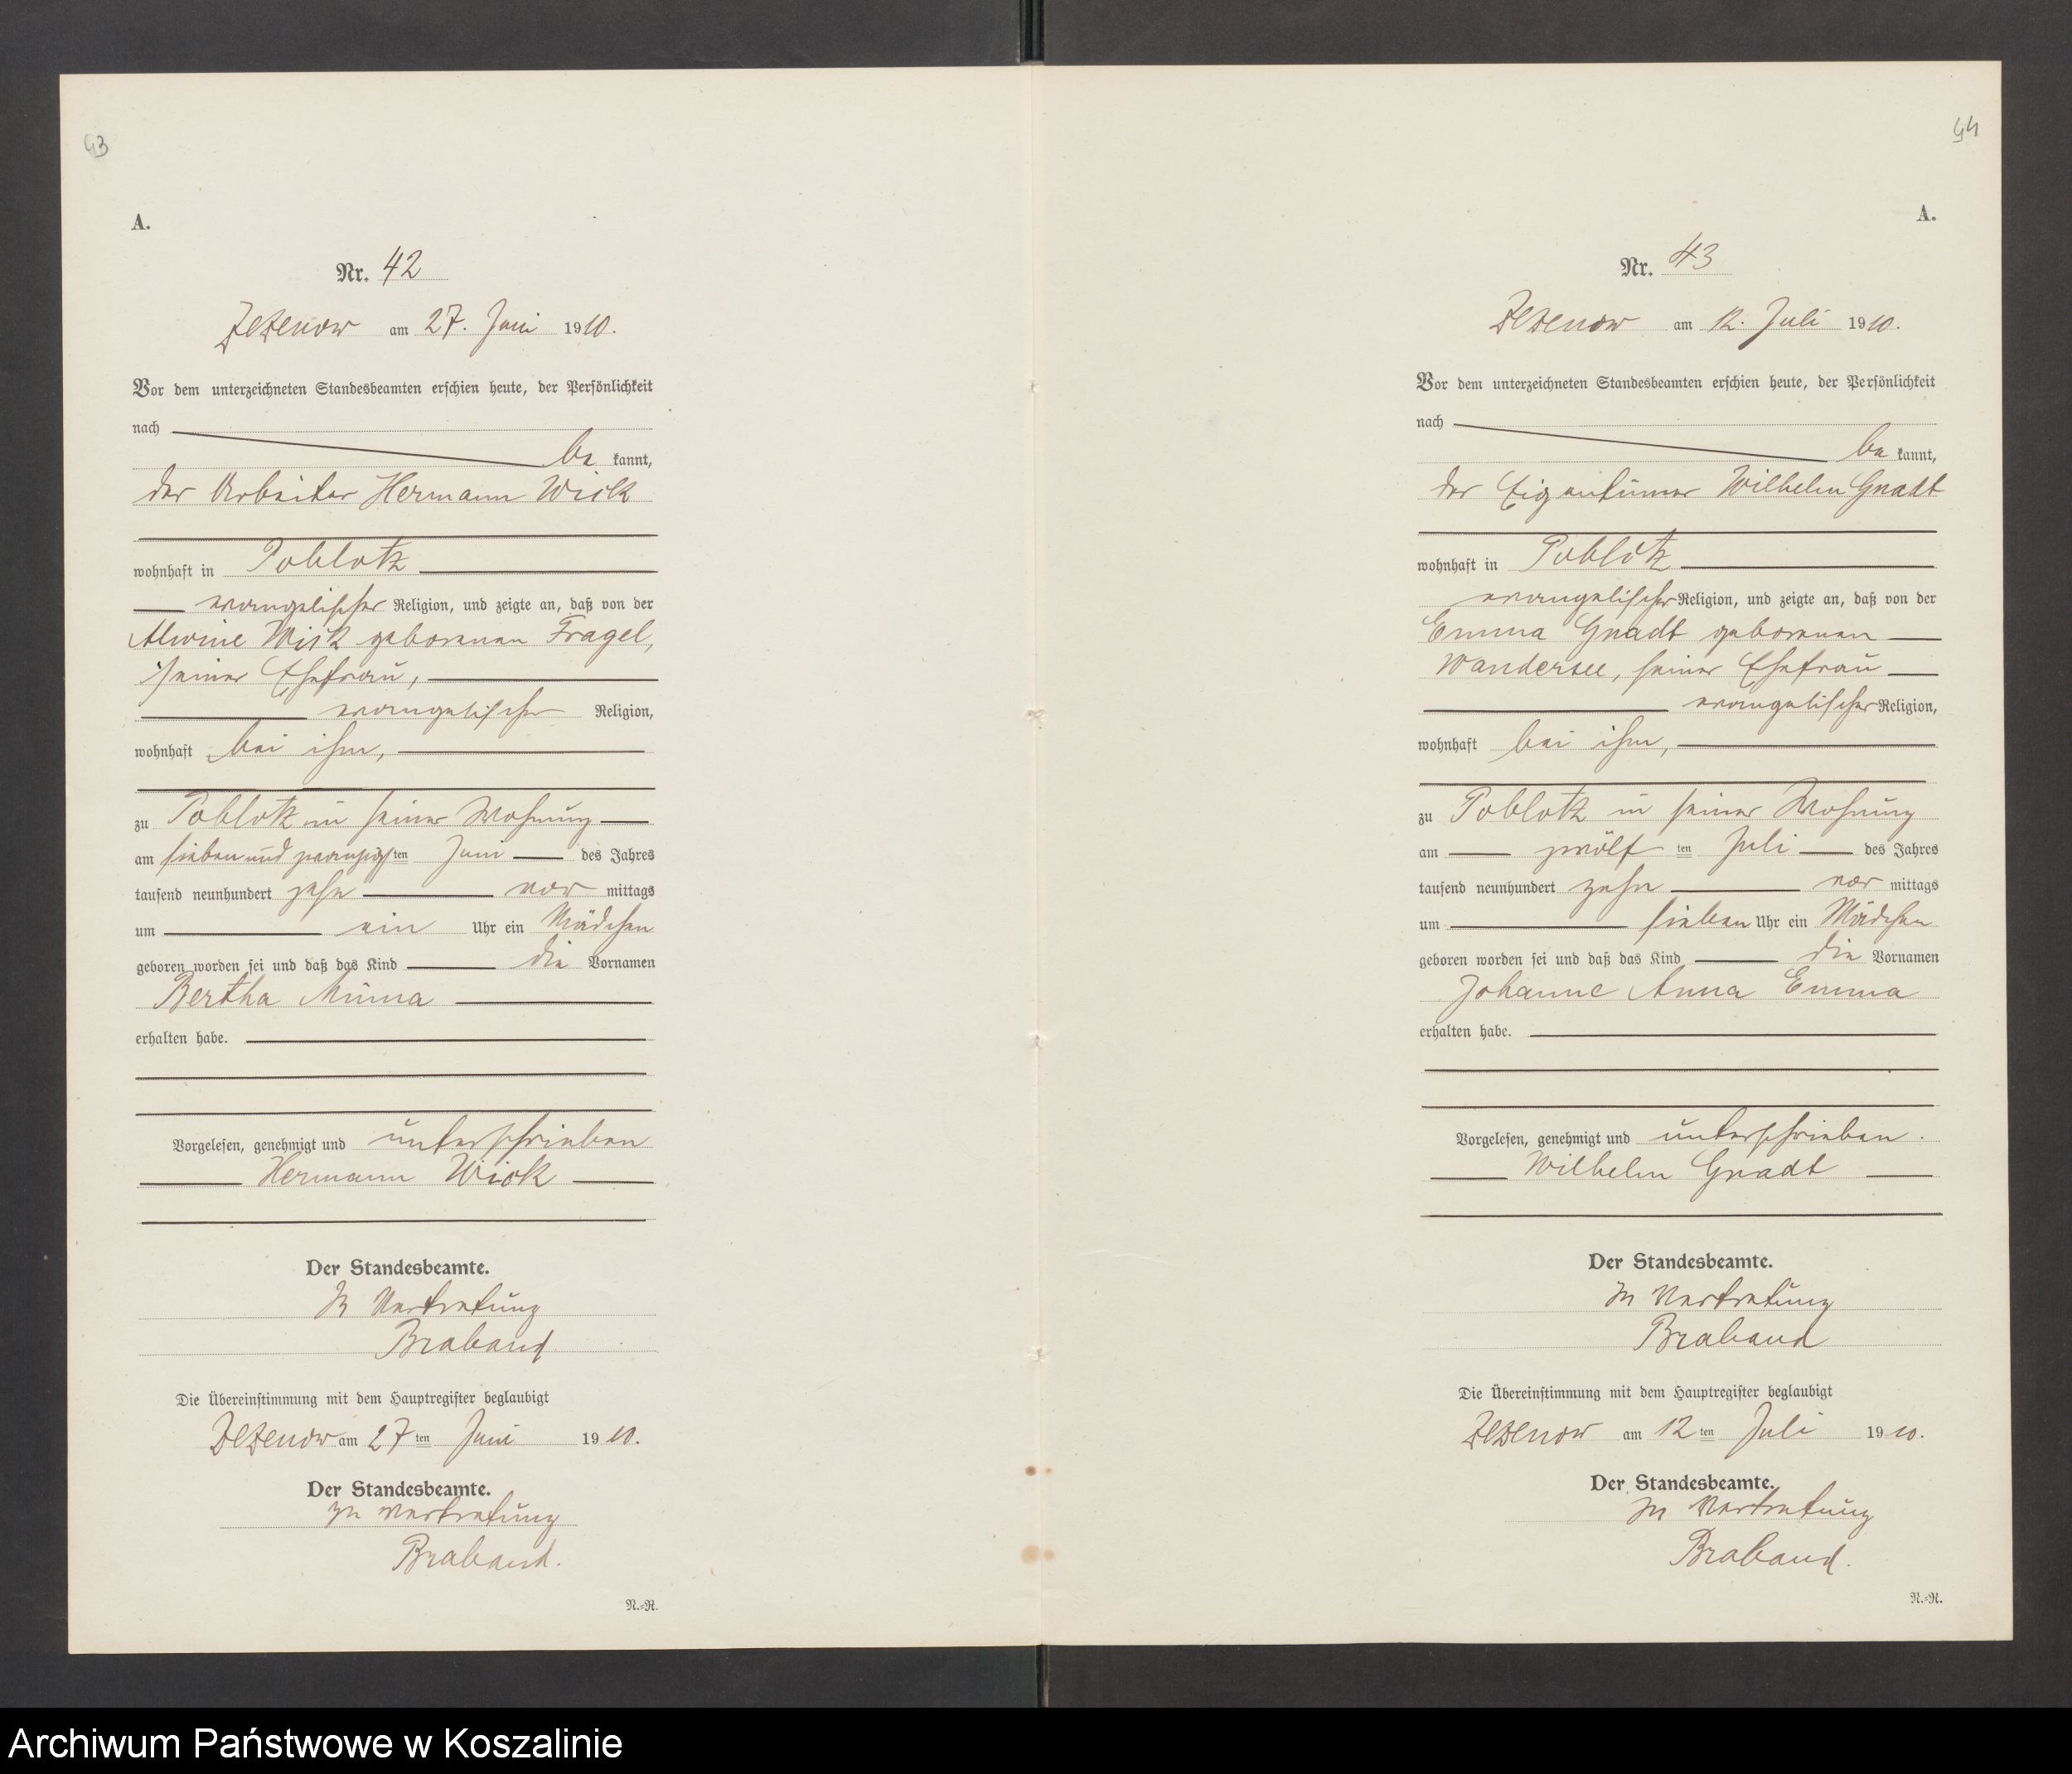 43
A.
Nr. 42
Zezenow am 27. Juni 1910.
Vor dem unterzeichneten Standesbeamten erschien heute, der Persönlichkeit
nach
be kannt,
der Arbeiter Hermann Wick
wohnhaft in Poblotz
evangelischer Religion, und zeigte an, daß von der
Alwine Wick geborenen Fragel,
seiner Ehefrau,
evangelischer Religion,
wohnhaft bei ihm,
zu Poblotz in seiner Wohnung
am siebenundzwanzigsten Juni des Jahres
tausend neunhundert zehn vor mittags
um ein Uhr ein Mädchen
geboren worden sei und daß das Kind die Vornamen
Bertha Minna
erhalten habe.
Vorgelesen, genehmigt und unterschrieben
Hermann Wick
Der Standesbeamte.
In Vertretung
Braband
Die Übereinstimmung mit dem Hauptregister beglaubigt
Zezenow am 27 ten Juni 1910.
Der Standesbeamte.
In Vertretung
Braband.
N.=R.
44
A.
Nr. 43
Zezenow am 12. Juli 1910.
Vor dem unterzeichneten Standesbeamten erschien heute, der Persönlichkeit
nach
be kannt,
der Eigentümer Wilhelm Gnadt
wohnhaft in Poblotz
evangelischer Religion, und zeigte an, daß von der
Emma Gnadt geborenen
Wandersee, seiner Ehefrau
evangelischer Religion,
wohnhaft bei ihm,
zu Poblotz in seiner Wohnung
am zwölf ten Juli des Jahres
tausend neunhundert zehn vor mittags
um sieben Uhr ein Mädchen
geboren worden sei und daß das Kind die Vornamen
Johanne Anna Emma
erhalten habe.
Vorgelesen, genehmigt und unterschrieben.
Wilhelm Gnadt
Der Standesbeamte.
In Vertretung
Braband
Die Übereinstimmung mit dem Hauptregister beglaubigt
Zezenow am 12 ten Juli 1910.
Der Standesbeamte.
In Vertretung
Braband.
N.=R.
Archiwum Państwowe w Koszalinie